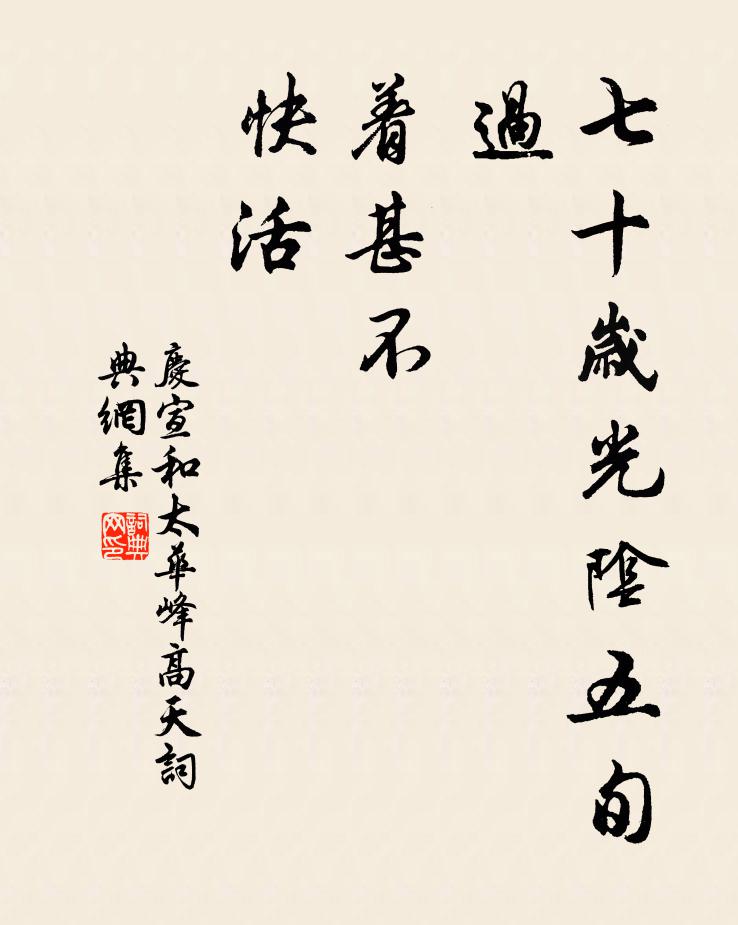 七十歲光陰五旬
過
着甚不
快活
慶宣和太華峰高天詞
典網集
詞典
网印